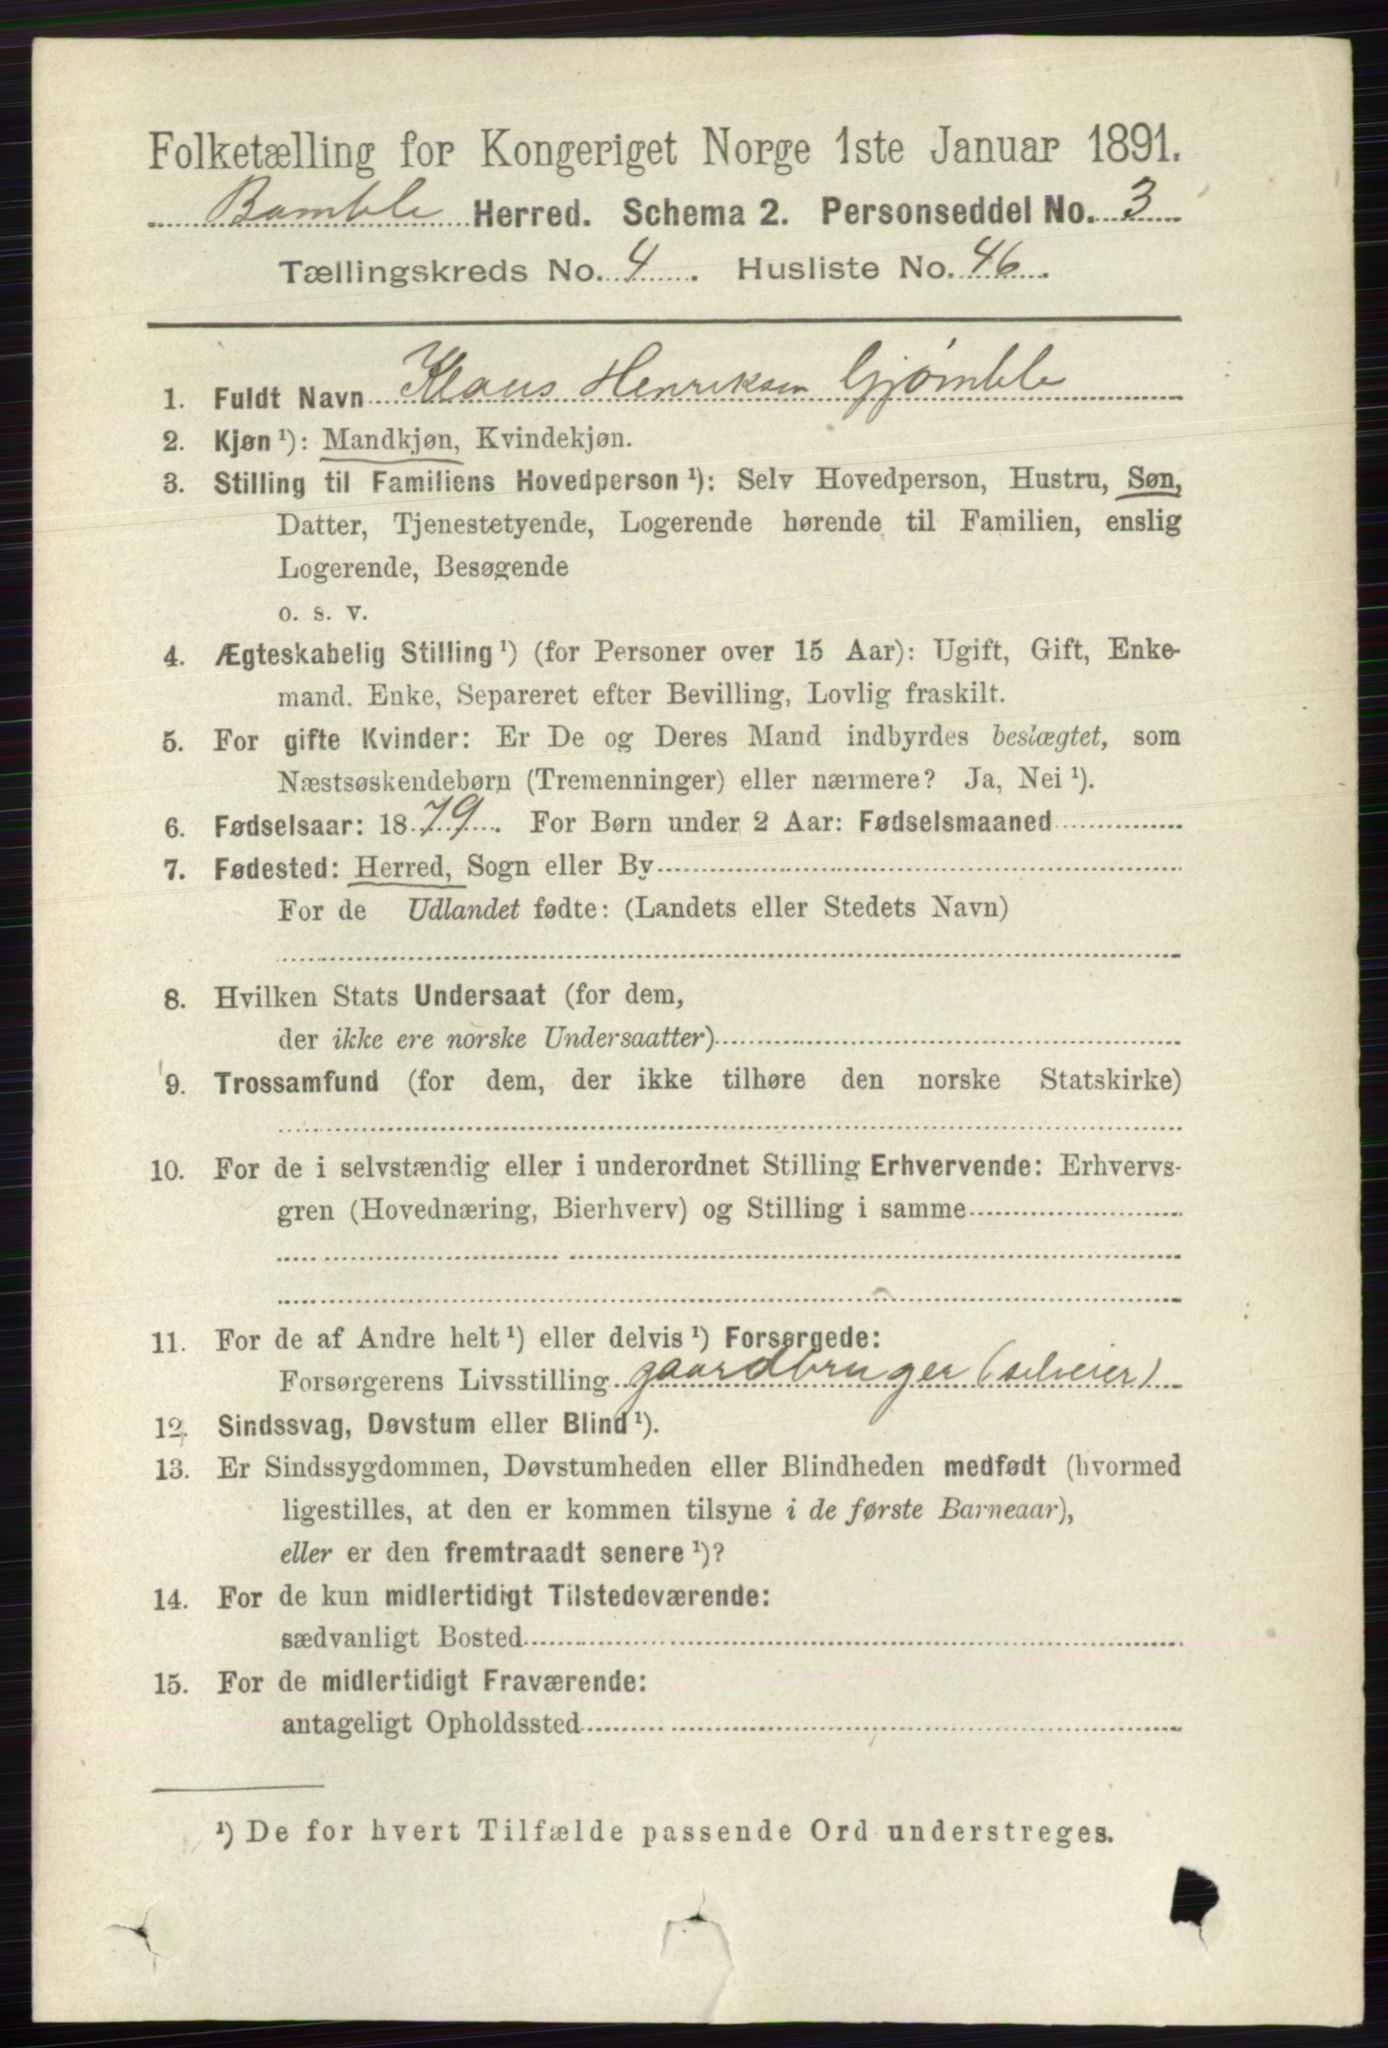 Folketælling for Kongeriget Norge 1ste Januar 1891.
Bamble Herred. Schema 2. Personseddel No. 3
Tællingskreds No. 4. Husliste No. 46.
1. Fuldt Navn Klaus Henriksen Gjømble
2. Kjøn ¹): Mandkjøn, Kvindekjøn.
3. Stilling til Familiens Hovedperson ¹): Selv Hovedperson, Hustru, Søn,
Datter, Tjenestetyende, Logerende hørende til Familien, enslig
Logerende, Besøgende
o. s. v.
4. Ægteskabelig Stilling ¹) (for Personer over 15 Aar): Ugift, Gift, Enke-
mand. Enke, Separeret efter Bevilling, Lovlig fraskilt.
5. For gifte Kvinder: Er De og Deres Mand indbyrdes beslægtet, som
Næstsøskendebørn (Tremenninger) eller nærmere? Ja, Nei ¹).
6. Fødselsaar: 1879. For Børn under 2 Aar: Fødselsmaaned
7. Fødested: Herred, Sogn eller By
For de Udlandet fødte: (Landets eller Stedets Navn)
8. Hvilken Stats Undersaat (for dem,
der ikke ere norske Undersaatter)
9. Trossamfund (for dem, der ikke tilhøre den norske Statskirke)
10. For de i selvstændig eller i underordnet Stilling Erhvervende: Erhvervs-
gren (Hovednæring, Bierhverv) og Stilling i samme
11. For de af Andre helt ¹) eller delvis ¹) Forsørgede:
Forsørgerens Livsstilling gaardbruger (selveier)
12. Sindssvag, Døvstum eller Blind ¹).
13. Er Sindssygdommen, Døvstumheden eller Blindheden medfødt (hvormed
ligestilles, at den er kommen tilsyne i de første Barneaar),
eller er den fremtraadt senere ¹)?
14. For de kun midlertidigt Tilstedeværende:
sædvanligt Bosted
15. For de midlertidigt Fraværende:
antageligt Opholdssted
¹) De for hvert Tilfælde passende Ord understreges.